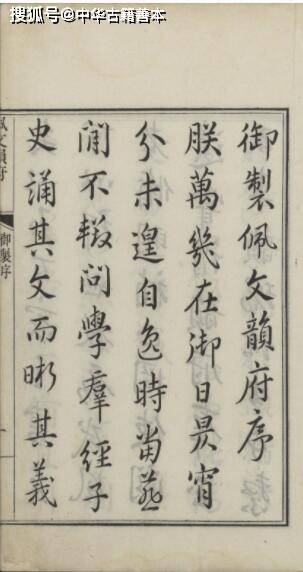 搜狐号@中华古籍善本
御製佩文韻府序
朕萬幾在御日昃宵
分未遑自逸時當燕
閒不輟問學羣經子
史誦其文而晰其義
佩文韻府
御製序